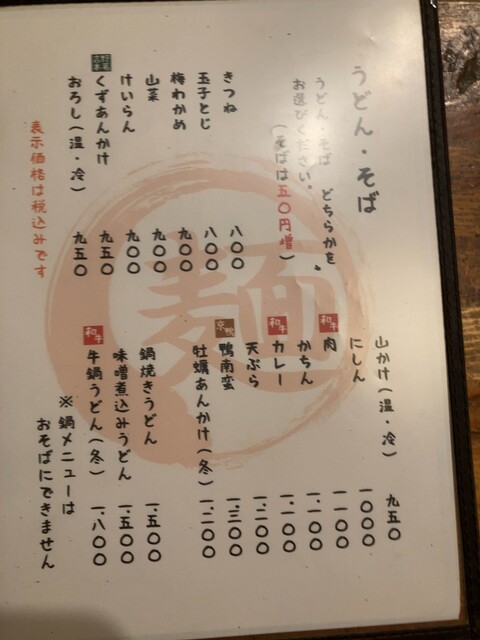 うどん・そば
うどん・そば どちらかを
お選びください。
(そばは五〇円増)
きつね 八〇〇
玉子とじ 八〇〇
梅わかめ 九〇〇
山菜 九〇〇
けいらん 九〇〇
くずあんかけ 九五〇
おろし(温・冷) 九五〇
表示価格は税込みです
麺
山かけ(温・冷) 九五〇
にしん 一〇〇〇
和牛 肉 一一〇〇
かちん 一、一〇〇
和牛 カレー 一、一〇〇
天ぷら 一、二〇〇
京鴨 鴨南蛮 一、三〇〇
牡蠣あんかけ(冬) 一、二〇〇
鍋焼きうどん 一、五〇〇
味噌煮込みうどん 一、五〇〇
和牛 牛鍋うどん(冬) 一、八〇〇
※鍋メニューは
おそばにできません